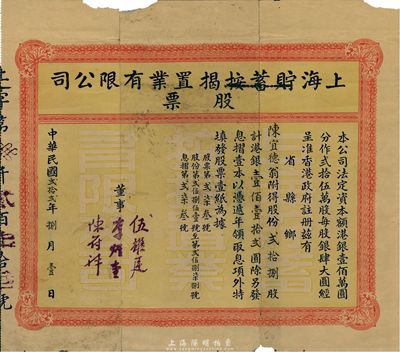 上海貯蓄按揭置業有限公司
股票
本公司法定資本額港銀壹佰萬圓
分作弍拾伍萬股每股銀肆大圓經
呈准香港政府註冊兹有
省 縣 鄉
陳宜德翁附得股份弍拾捌股
計港銀壹佰壹拾弍圓除另發
息摺壹本以憑遞年領取息項外特
填發股票壹紙為據
股票第弍柒叁號
息摺第弍柒叁號
董事
伍耀廷
陳符祥
中華民國弍拾弍年捌月壹日
上海陽明拍卖